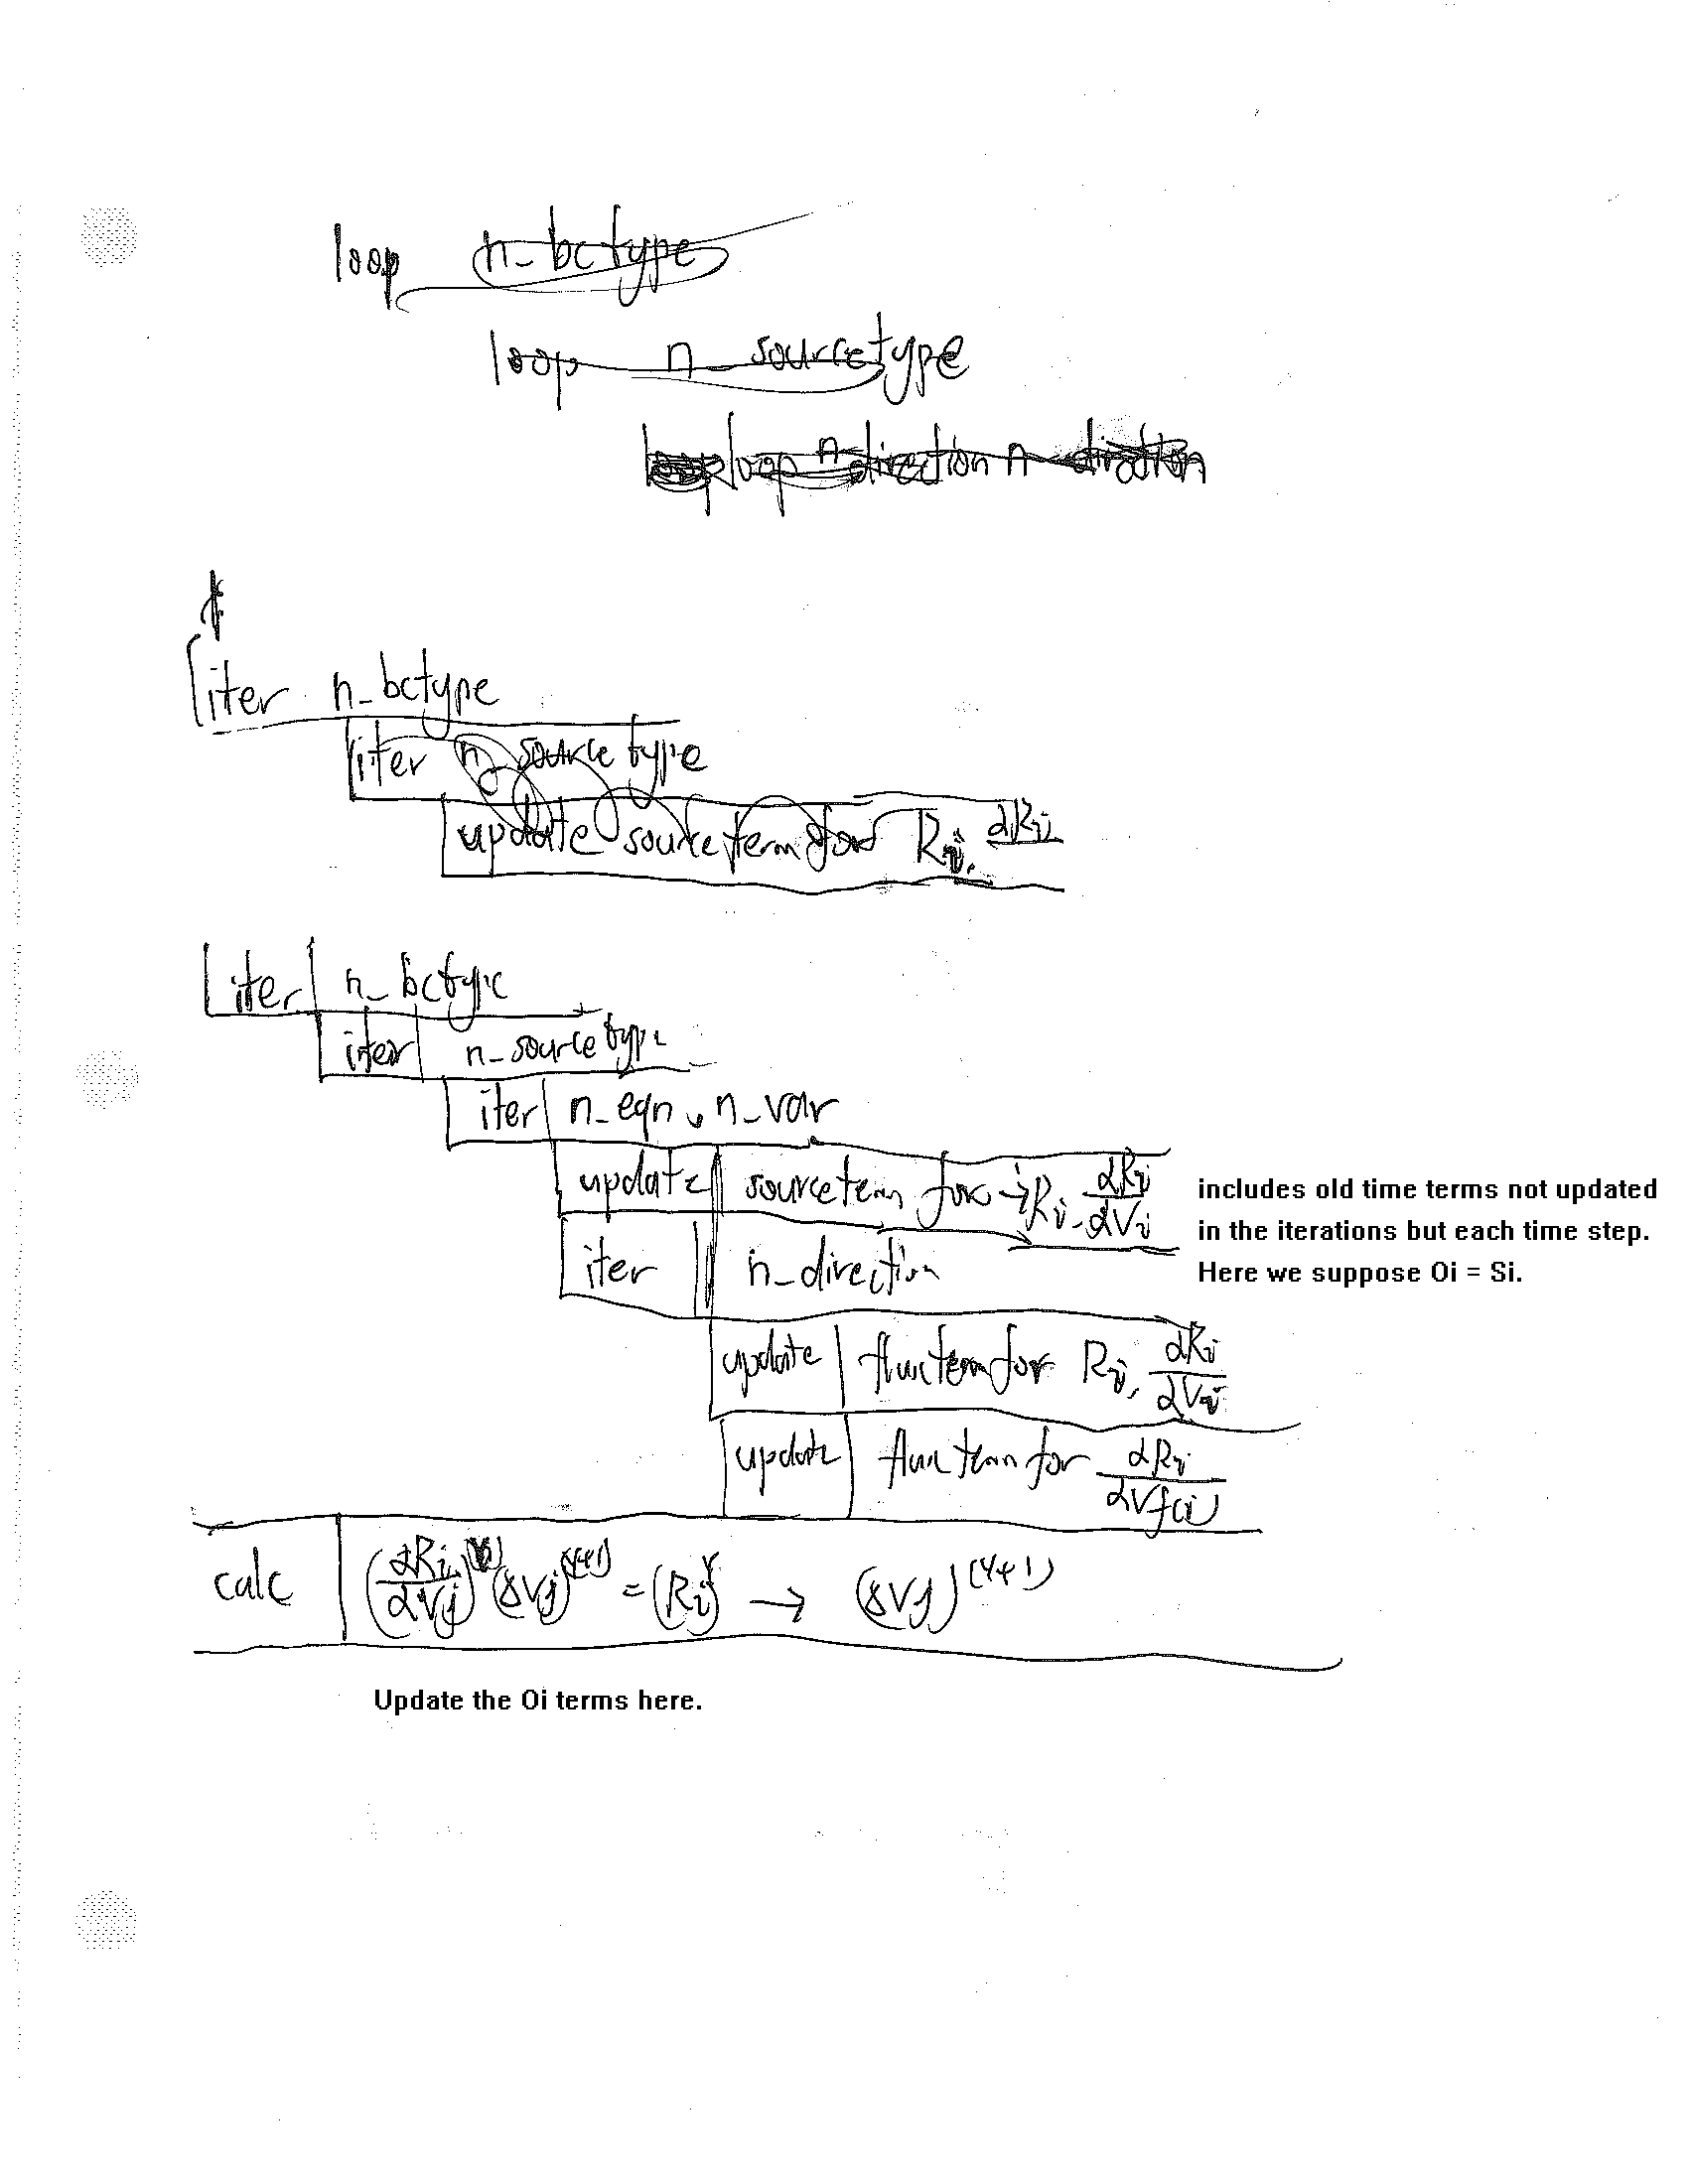 loop n_bctype
loop n_sourcetype
loop n_direction n_direction
iter n_bctype
iter n_sourcetype
update source term for Ri, ∂Ri
iter n_bctype
iter n_sourcetype
iter n_eqn, n_var
update source term for → Ri, ∂Ri/∂Vi
includes old time terms not updated
in the iterations but each time step.
Here we suppose Oi = Si.
iter n_direction
update flux term for Ri, ∂Ri/∂Vi
update flux term for ∂Ri/∂Vf(i)
calc (∂Ri/∂Vj) (δVj)^(ν+1) = (Ri)^ν → (δVj)^(ν+1)
Update the Oi terms here.